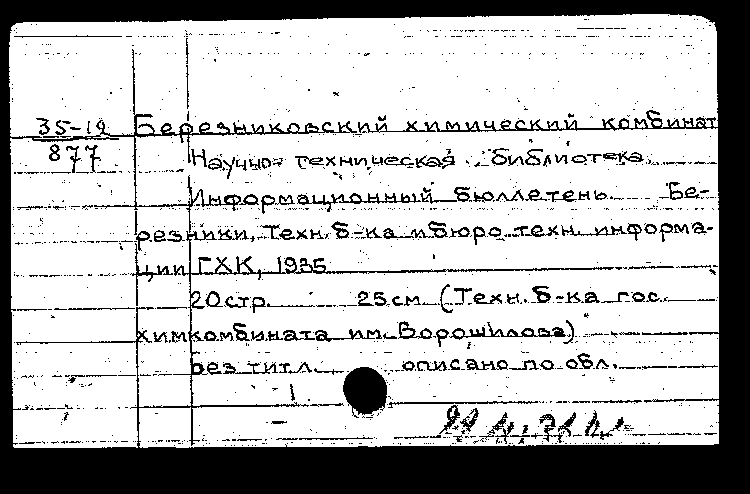 35-12
877
Березниковский химический комбинат
Научно-техническая библиотека.
Информационный бюллетень. Бе-
резники, Техн. б-ка и бюро техн. информа-
ции ГХК, 1935
20 стр. 25 см. (Техн. б-ка гос.
химкомбината им. Ворошилова)
Без тит. л. описано по обл.